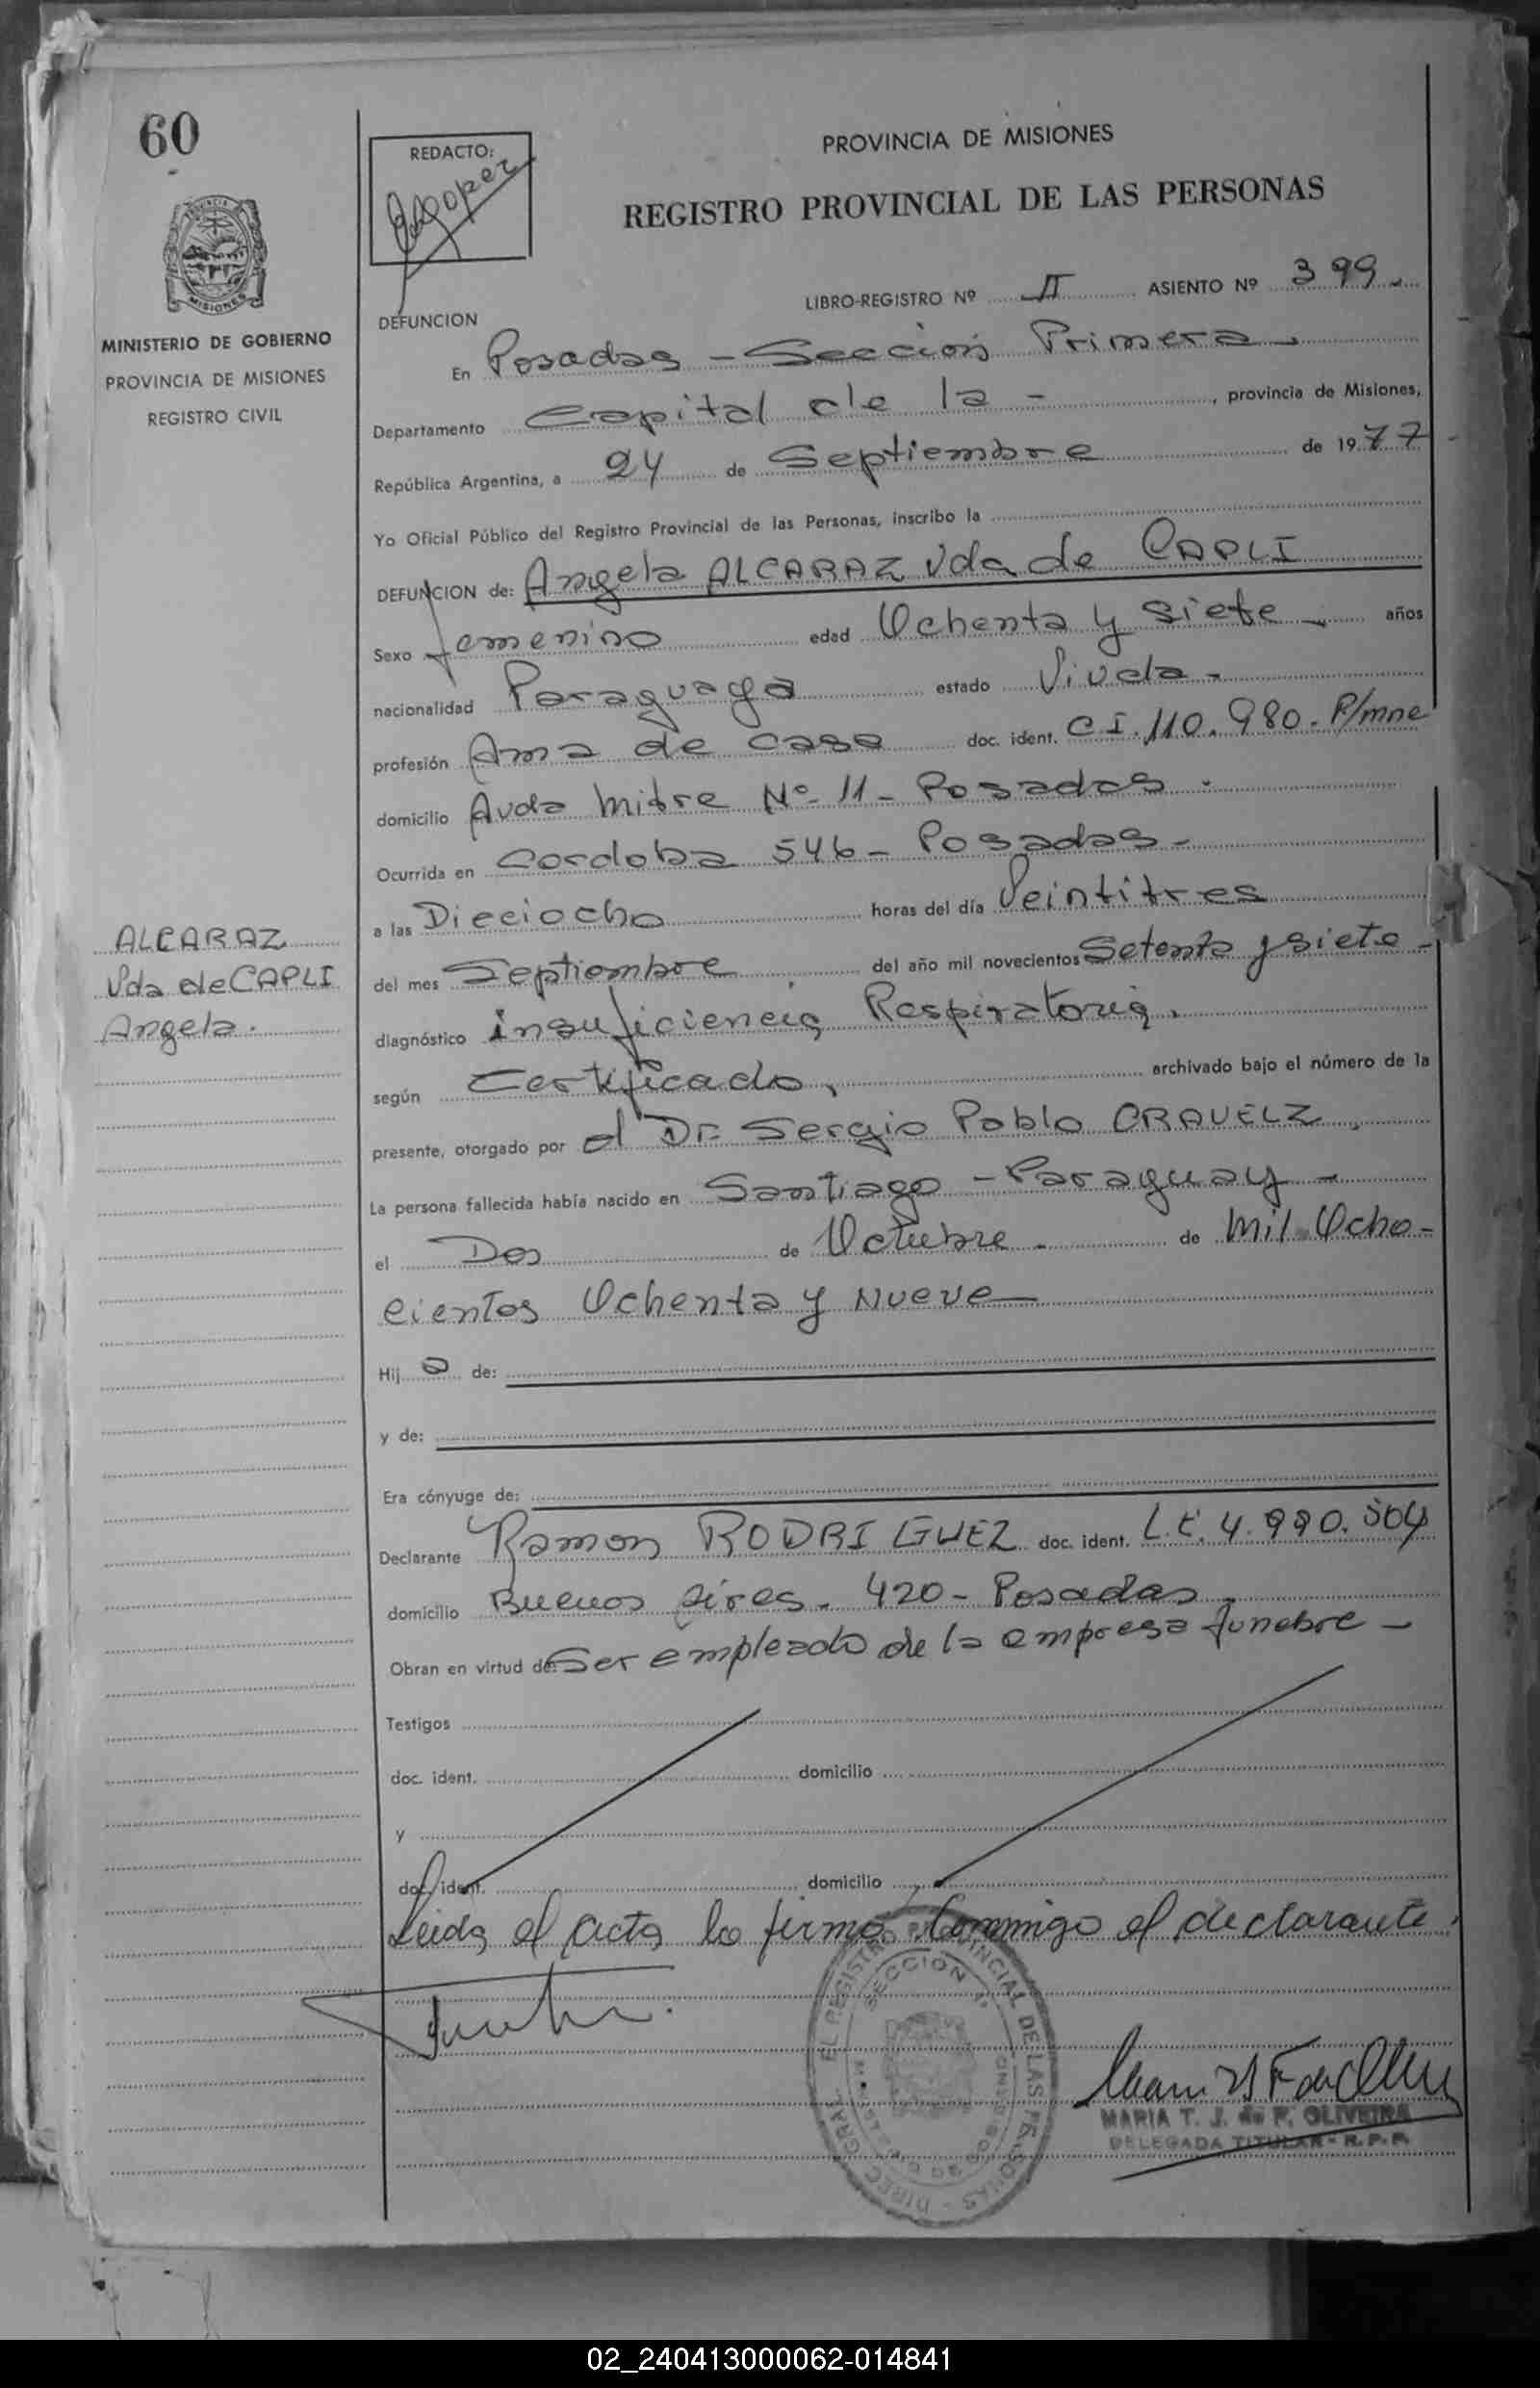 60
REDACTO:
PROVINCIA DE MISIONES
REGISTRO PROVINCIAL DE LAS PERSONAS
MISIONES
MINISTERIO DE GOBIERNO
PROVINCIA DE MISIONES
REGISTRO CIVIL
LIBRO-REGISTRO Nº II ASIENTO Nº 399.
DEFUNCION
En Posadas - Sección Primera -
Departamento Capital de la - , provincia de Misiones,
República Argentina, a 24 de Septiembre de 19 77 -
Yo Oficial Público del Registro Provincial de las Personas, inscribo la
DEFUNCION de: Angela ALCARAZ Vda de CAPLI
Sexo femenino edad Ochenta y siete - años
nacionalidad Paraguaya estado Viuda -
profesión Ama de casa doc. ident. C.I. 110.980. P/mne
domicilio Avda Mitre Nº 11 - Posadas -
Ocurrida en Cordoba 546 - Posadas -
a las Dieciocho horas del día Veintitres
del mes Septiembre del año mil novecientos Setenta y siete -
diagnóstico insuficiencia Respiratoria.
según Certificado, archivado bajo el número de la
presente, otorgado por el Dr. Sergio Pablo CRAVELZ,
La persona fallecida había nacido en Santiago - Paraguay -
el Dos de Octubre - de Mil Ocho-
cientos Ochenta y Nueve
Hij a de:
y de:
Era cónyuge de:
Declarante Ramon RODRIGUEZ doc. ident. L.E. 4.990.504
domicilio Buenos Aires - 420 - Posadas -
Obran en virtud de Ser empleado de la empresa funebre -
Testigos
doc. ident. domicilio
y
doc. ident. domicilio
Leida el acta la firma Conmigo el declarante.
ALCARAZ
Vda de CAPLI
Angela.
REGISTRO PROVINCIAL DE LAS PERSONAS
SECCION 1ª
MARIA T. J. de F. OLIVEIRA
DELEGADA TITULAR - R.P.P.
02_240413000062-014841